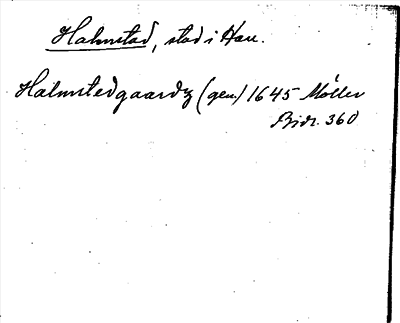 Halmstad, stad i Hall.
Halmstedgaardz (gen.) 1645 Møller
Bidr. 360